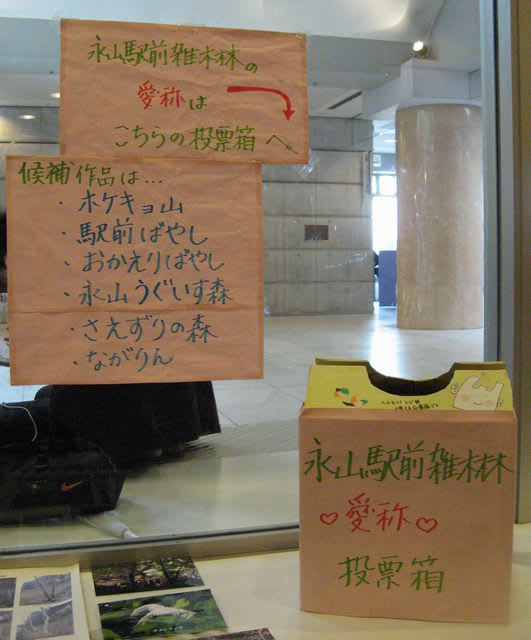 永山駅前雑木林の
愛称は
こちらの投票箱へ
候補作品は…
・ホケキョ山
・駅前ばやし
・おかえりばやし
・永山うぐいす森
・さえずりの森
・ながりん
永山駅前雑木林
♡愛称♡
投票箱